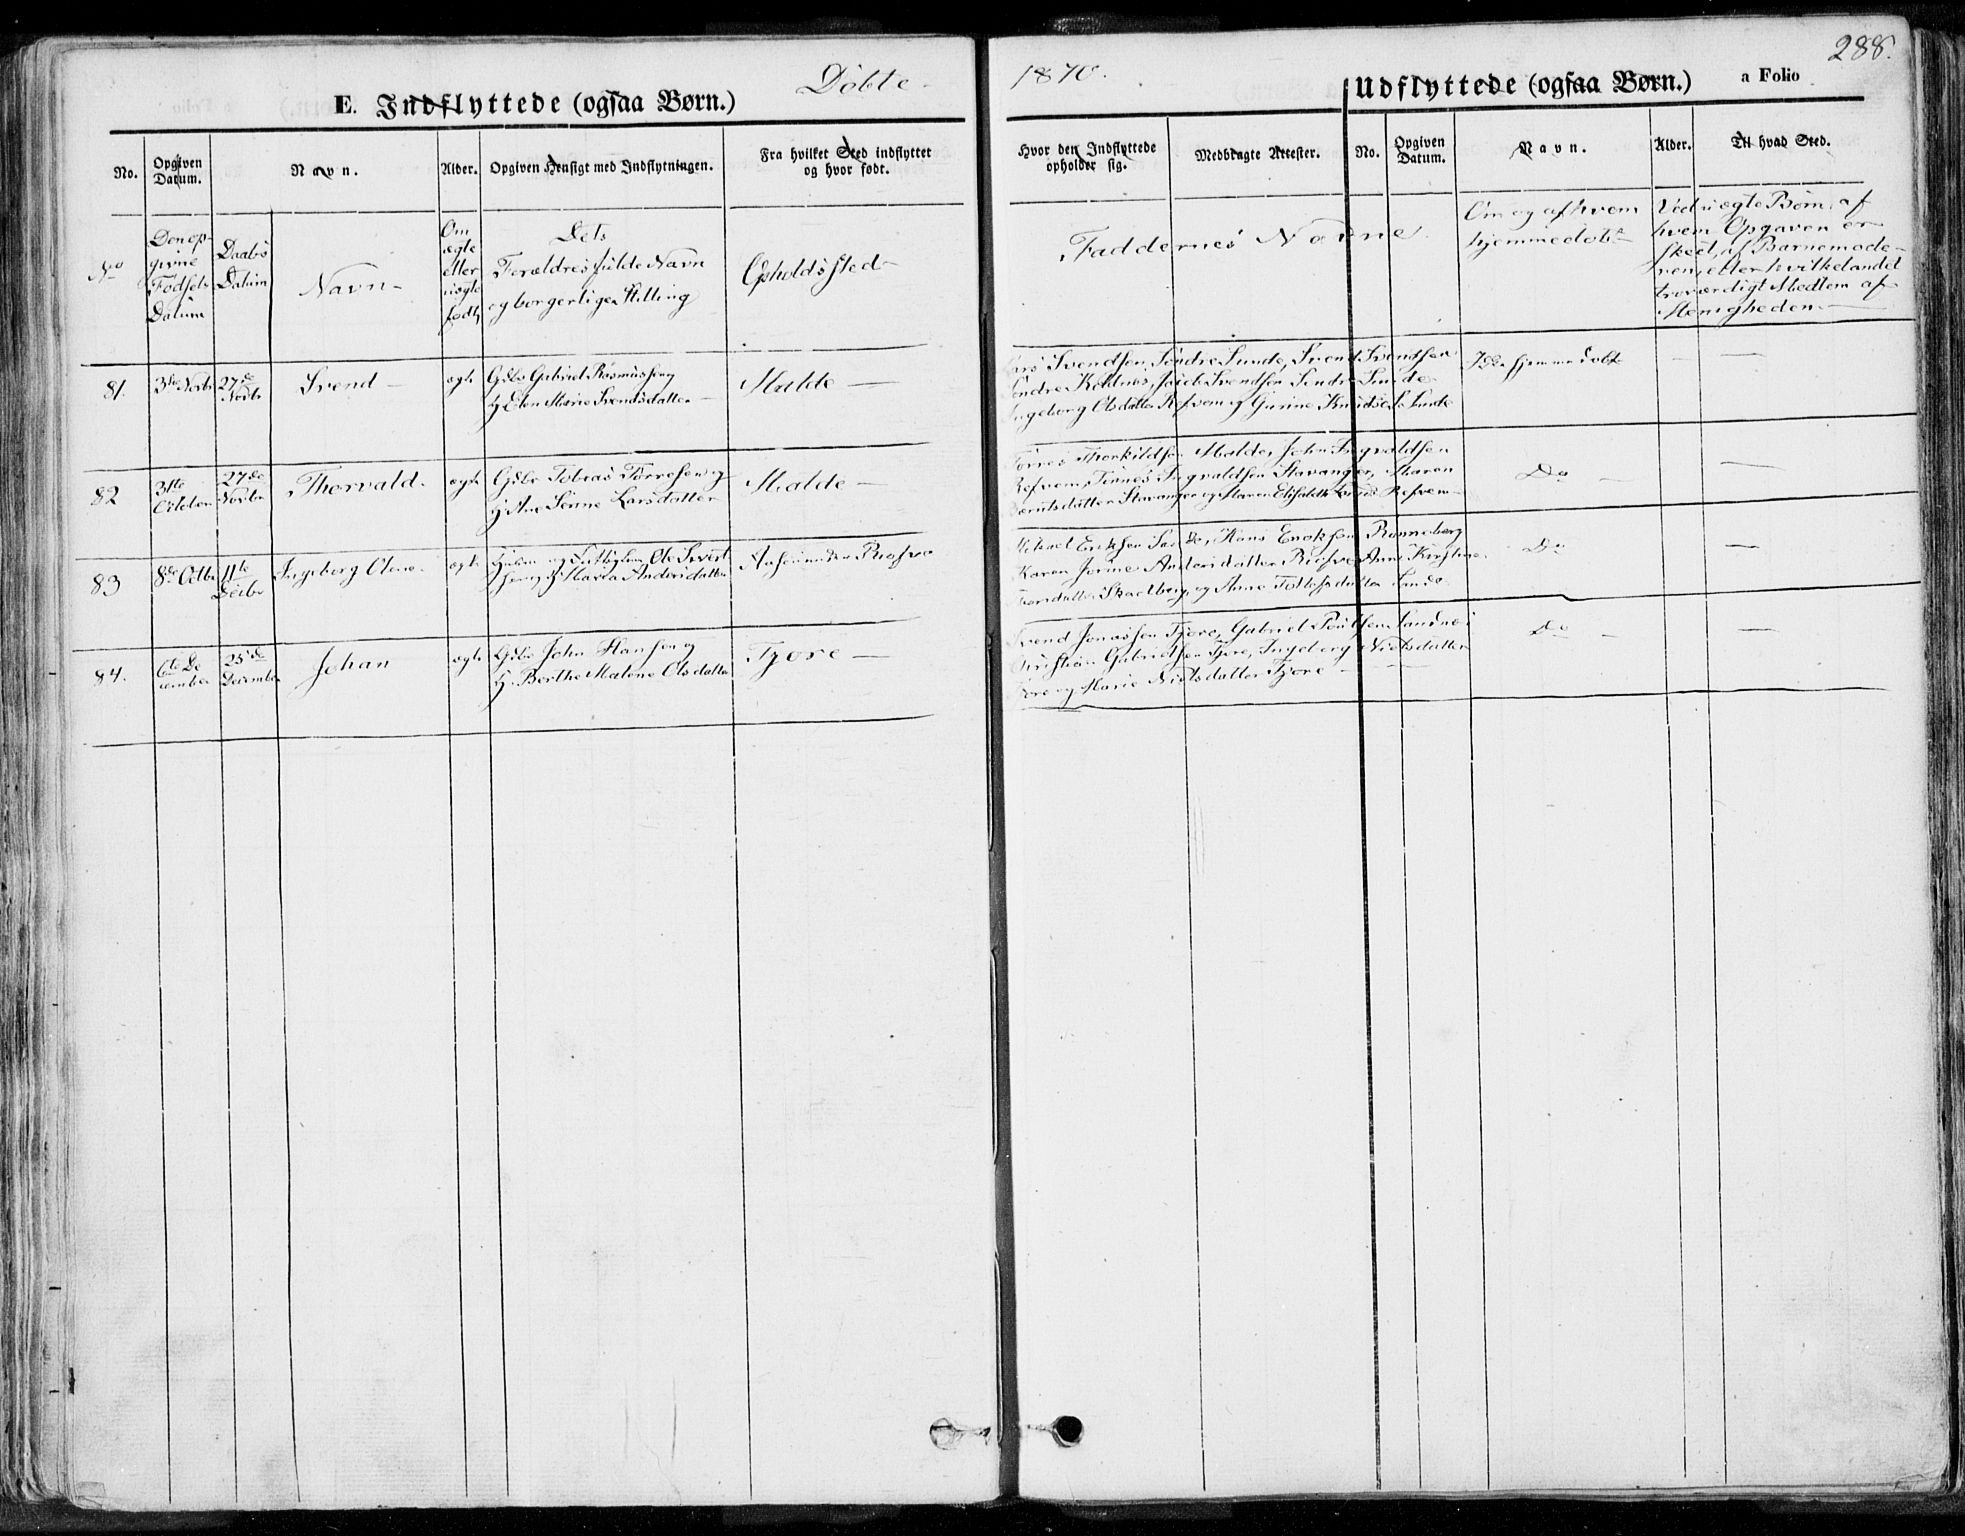 Døbte 1870. 288.
E. Indflyttede (ogsaa Børn.) Udflyttede (ogsaa Børn.) a Folio
No. Opgiven Datum. Navn. Alder. Opgiven Hensigt med Indflytningen. Fra hvilket Sted indflyttet og hvor født. Hvor den Indflyttede opholder sig. Medbragte Attester. No. Opgiven Datum. Navn. Alder. Til hvad Sted.
No Den opgivne Fødsels Datum Daabs Datum Navn Om ægte eller uægte født, Dets Forældres fulde Navn og borgerlige Stilling Opholdssted Faddernes Navne Om og af hvem hjemmedøbt Ved uægte Børn, af hvem Opgaven er skeet, af Barnemoderen, eller hvilket andet troværdigt Medlem af Menigheden
81. 3die Novbr 27de Novbr Svend ægte Gdbr Gabriel Rasmussen og
H. Elen Marie Svendsdatter Malde
Svendsen Søndre Sunde, Svend Svendsen
Søndre Jacob Svendsen Søndre Sunde
Ingeborg Olsdatter Refvem og Gurine Sunde
hjemmedøbt
82 31te October 27de Novbr Thorvald ægte Gdbr Tobias Tørresen og
H. Ane Serine Larsdatter Malde
Tørres Thorkildsen Malde, John Ingvaldsen
Refvem, Tønnes Ingvaldsen Stavanger, Maren
Stavanger og Maren Elisabeth Refvem
Do
83 8de Octbr 11te Decbr Ingeborg Olene ægte Ole Sivert
og H. Maria Andersdatter Aasen under
Mikael Eriksen Sunde, Hans Enoksen Rønneberg
Karen Jorine Andersdatter Anne Kirstine
Skadberg, og Anne Tollefsdatter Sunde
Do
84. 6te December 25de December Johan ægte Gdbr John Hansen og
H. Berthe Malene Olsdatter Tjore
Svend Jonassen Tjore, Gabriel Poulsen Sandnes
Christian Gabrielsen Tjore, Ingeborg Nielsdatter
Tjore og Marie Nielsdatter Tjore
Do